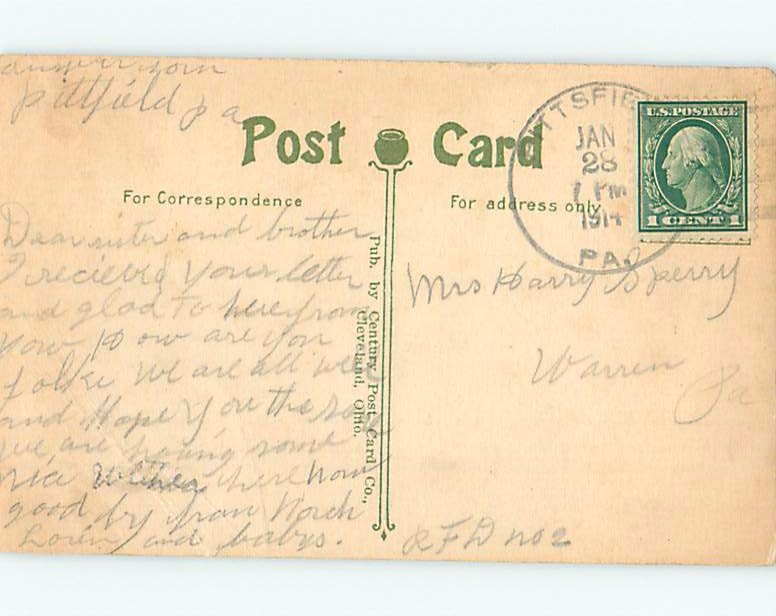 answer soon
Pittfield pa
Post Card
For Correspondence
For address only
PITTSFIE
JAN
28
1 PM
1914
PA.
U.S. POSTAGE
1 CENT 1
Dear sister and brother
I recieved your letter
and glad to here from
you How are you
folks we are all well
and Hope you the same
we are having some
nice wether here now
good by from
Loren and babys.
Pub. by Century Post Card Co.,
Cleveland, Ohio.
Mrs Harry Sperry
Warren
Pa
RFD no 2